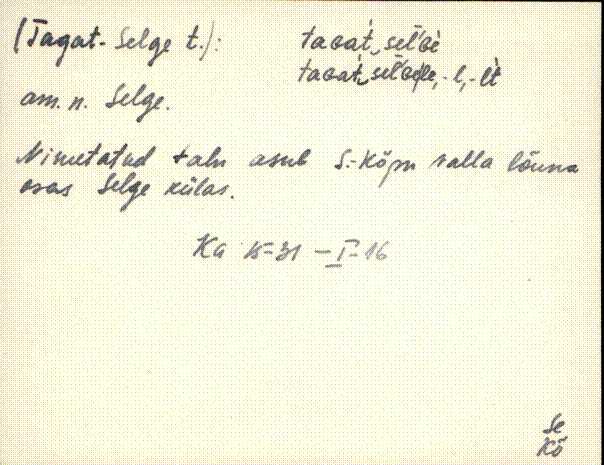 (Tagat-Selge t.): taɢat́ seĺɢè
taɢat́ seĺɢele, -l, -lt
am. n. Selge.
Nimetatud talu asub S.-Kõpu valla lõuna
osas Selge külas.
Ka K-31 – I-16
Se
Kõ